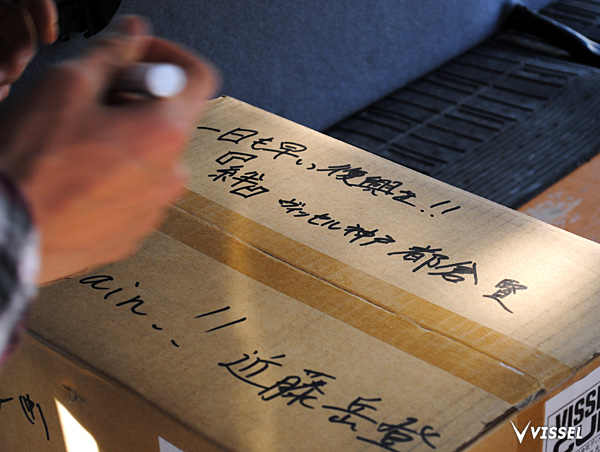 一日も早い復興を!!
ヴィッセル神戸 都倉 賢
ain..!!
近藤岳登
VISSEL